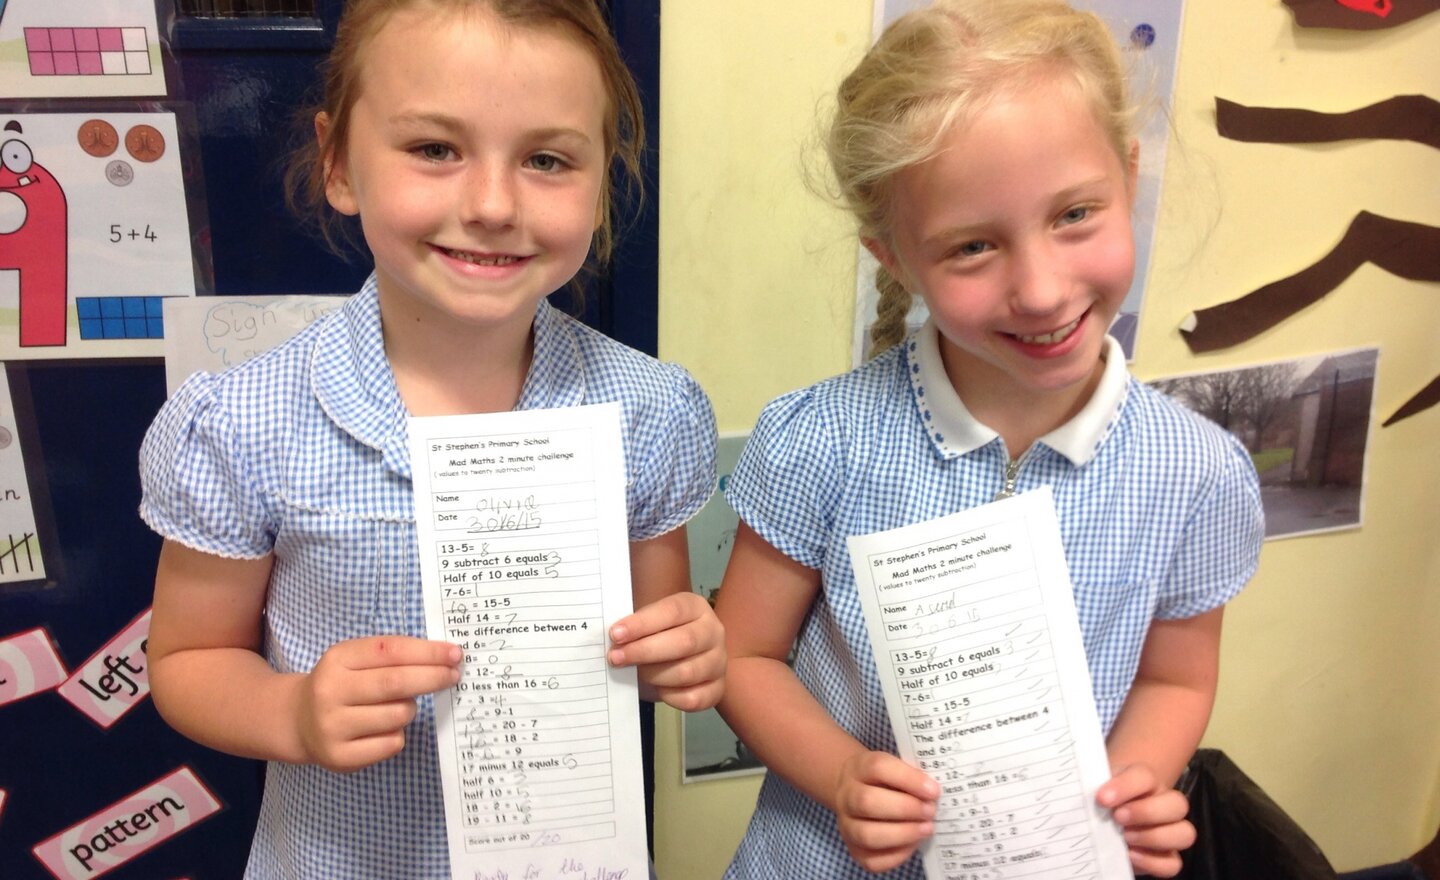 5+4
Sign
left
pattern
St Stephen's Primary School
Mad Maths 2 minute challenge
( values to twenty subtraction)
Name Olivia
Date 30/6/15
13-5= 8
9 subtract 6 equals 3
Half of 10 equals 5
7-6= 1
10 = 15-5
Half 14 = 7
The difference between 4
and 6= 2
8= 0
= 12- 8
10 less than 16 =6
7 - 3 =4
8 = 9-1
13 = 20 - 7
16 = 18 - 2
15- = 9
17 minus 12 equals 5
half 6 = 3
half 10 = 5
18 - 2 = 16
19 - 11 = 8
Score out of 20 /20
Ready for the
challenge
St Stephen's Primary School
Mad Maths 2 minute challenge
( values to twenty subtraction)
Name
Date 30 6 15
13-5= 8
9 subtract 6 equals 3
Half of 10 equals
7-6=
= 15-5
Half 14 = 7
The difference between 4
and 6= 2
8-8=
= 12-
less than 16 =6
- 3 = 4
= 9-1
= 20 - 7
= 18 - 2
15- = 9
17 minus 12 equals